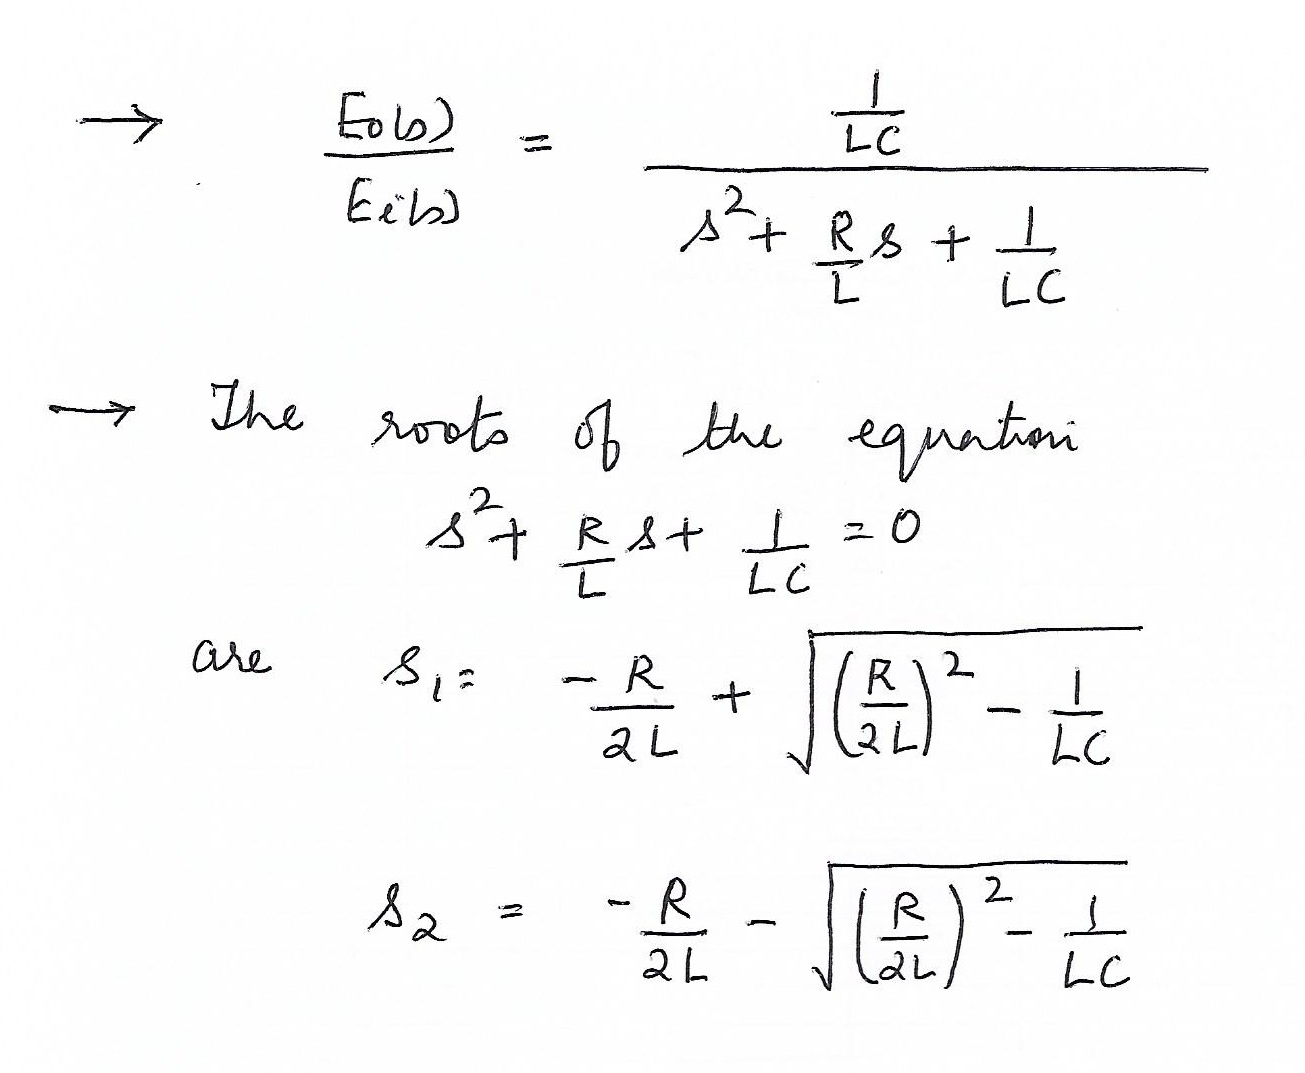 → E₀(s)/Eᵢ(s) = (1/LC) / (s² + (R/L)s + 1/LC)
→ The roots of the equation
s² + (R/L)s + 1/LC = 0
are s₁ = -R/2L + √((R/2L)² - 1/LC)
s₂ = -R/2L - √((R/2L)² - 1/LC)